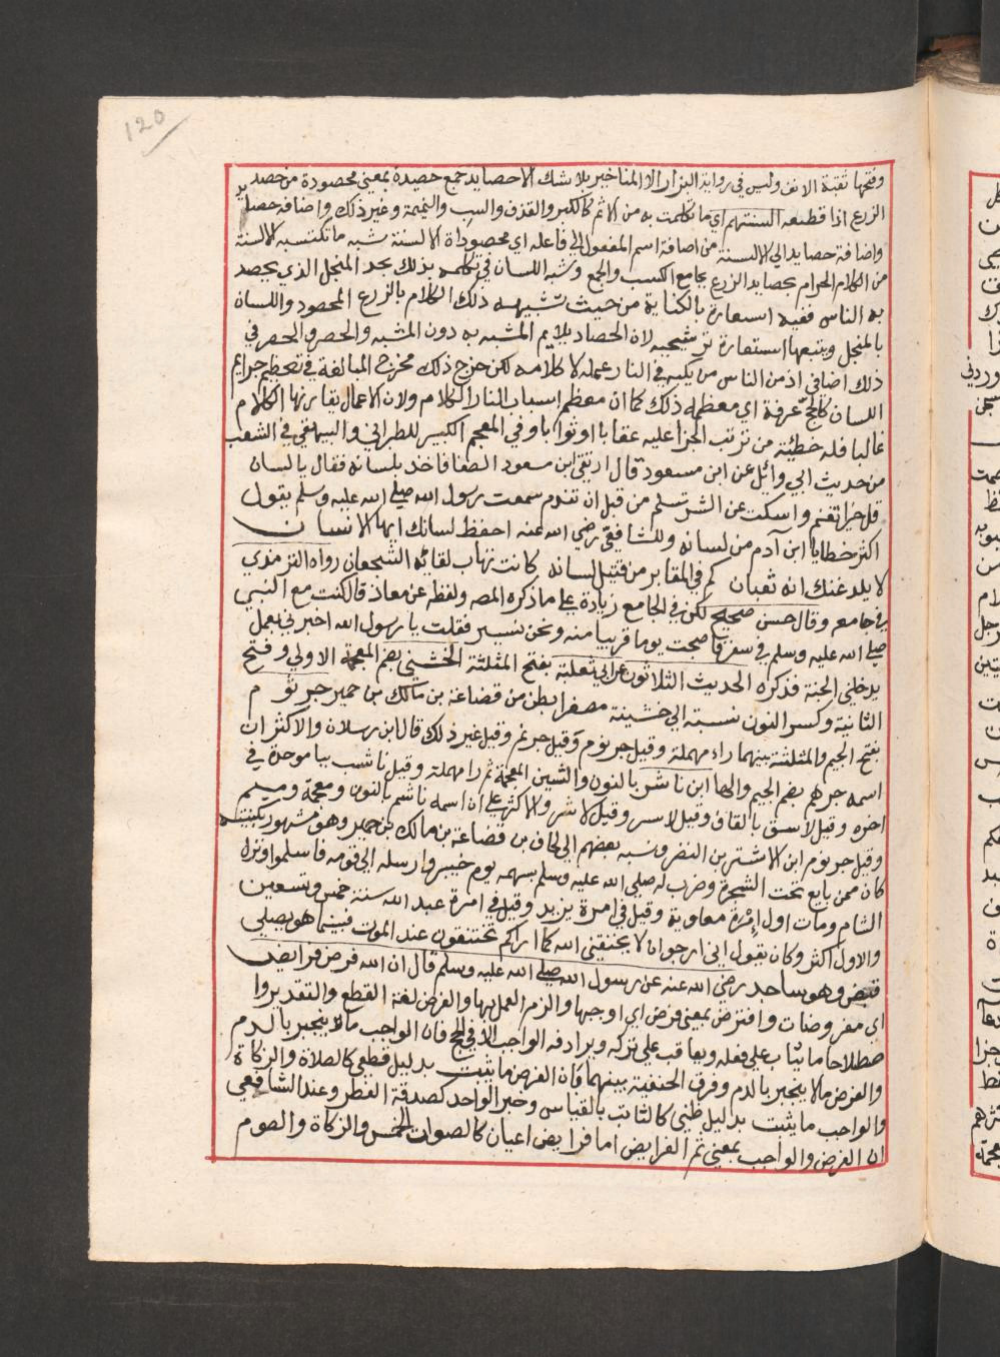 120
وفتحها ثقبة الانف وليس في رواية البزار الا المناخير بلا شك الا حصايد جمع حصيدة بمعنى محصودة من حصد
الزرع اذا قطعه السنتهم اي ما تكلمت به من الاثم كالكبر والقذف والسب والنميمة وغير ذلك واضافة حصايد
واضافة حصايد الي الالسنة من اضافة اسم المفعول الي فاعله اي محصودات الالسنة شبه ما تكتسبه الالسنة
من الكلام الحرام بحصايد الزرع بجامع الكسب والجمع وشبه اللسان في تكلمه بذلك بحد المنجل الذي يحصد
به الناس ففيه استعارة بالكناية من حيث تشبيهه ذلك الكلام بالزرع المحصود واللسان
بالمنجل ويتبعها استعارة ترشيحية لان الحصاد يلايم المشبه به دون المشبه والحصر في
ذلك اضافي اذ من الناس من يكبه في النار عمله لا كلامه لكن خرج ذلك مخرج المبالغة في تعظيم جرايم
اللسان كالحج عرفة اي معظمه ذلك كما ان معظم اسباب النار الكلام ولان الاعمال يقارنها الكلام
غالبا فله خطيئة من ترتب الجزا عليه عقابا او ثوابا وفي المعجم الكبير للطبراني والبيهقي في الشعب
من حديث ابي وائل عن ابن مسعود قال ارتقى ابن مسعود الصفا فاخذ بلسانه فقال يا لسان
قل خيرا تغنم واسكت عن الشر تسلم من قبل ان تندم سمعت رسول الله صلي الله عليه وسلم يقول
اكثر خطايا ابن آدم من لسانه وللشافعي رضي الله عنه احفظ لسانك ايها الانسان
لا يلدغنك انه ثعبان كم في المقابر من قتيل لسانه كانت تهاب لقائه الشجعان رواه الترمذي
في جامعه وقال حسن صحيح لكن في الجامع زيادة علي ما ذكره المصـ ولفظه عن معاذ قال كنت مع النبي
صلي الله عليه وسلم في سفر فاصبحت يوما قريبا منه ونحن نسير فقلت يا رسول الله اخبرني بعمل
يدخلني الجنة فذكره الحديث الثلاثون عن ابي ثعلبة بفتح المثلثة الخشني بضم المعجمة الاولي وفتح
الثانية وكسر النون نسبة الي خشينة مصغرا بطن من قضاعة بن مالك بن حمير جرثوم
بفتح الجيم والمثلثة بينهما راء مهملة وقيل جرثوم وقيل جرثم وقيل غير ذلك قال ابن رسلان والاكثر ان
اسمه جرهم بضم الجيم والها ابن ناشر بالنون والشين المعجمة ثم را مهملة وقيل ناشب ببا موحدة في
اخره وقيل لاسق بالقاف وقيل لاسر وقيل لاشر والاكثر علي ان اسمه ناشم بالنون ومعجمة وميم
وقيل جرثوم ابن الاشتر بن النضر ونسبه بعضهم الي بن قضاعة بن مالك بن حمير وهو مشهور بكنيته
كان ممن بايع تحت الشجرة وضرب له صلي الله عليه وسلم بسهمه يوم خيبر وارسله الي قومه فاسلموا ونزل
الشام ومات اول إمرة معاوية وقيل في امرة يزيد وقيل في امرة عبد الله سنة خمس وتسعين
والاول اكثر وكان يقول اني ارجو ان لا يخنقني الله كما اراكم تختنقون عند الموت فبينما هو يصلي
قبض وهو ساجد رضي الله عنه عن رسول الله صلي الله عليه وسلم قال ان الله فرض فرايض
اي مفروضات وافترض بمعنى فرض اي اوجبها والزم العمل بها والفرض لغة القطع والتقدير وا
صطلاحا ما يثاب علي فعله ويعاقب علي تركه ويرادفه الواجب الا في الحج فان الواجب ما ينجبر بالدم
والفرض ما لا ينجبر بالدم وفرق الحنفية بينهما فان الفرض ما يثبت بدليل قطعي كالصلاة والزكاة
والواجب ما يثبت بدليل ظني كالثابت بالقياس وخبر الواحد كصدقة الفطر وعند الشافعي
ان الفرض والواجب بمعنى ثم الفرايض اما فرايض اعيان كالصوات الخمس والزكاة والصوم